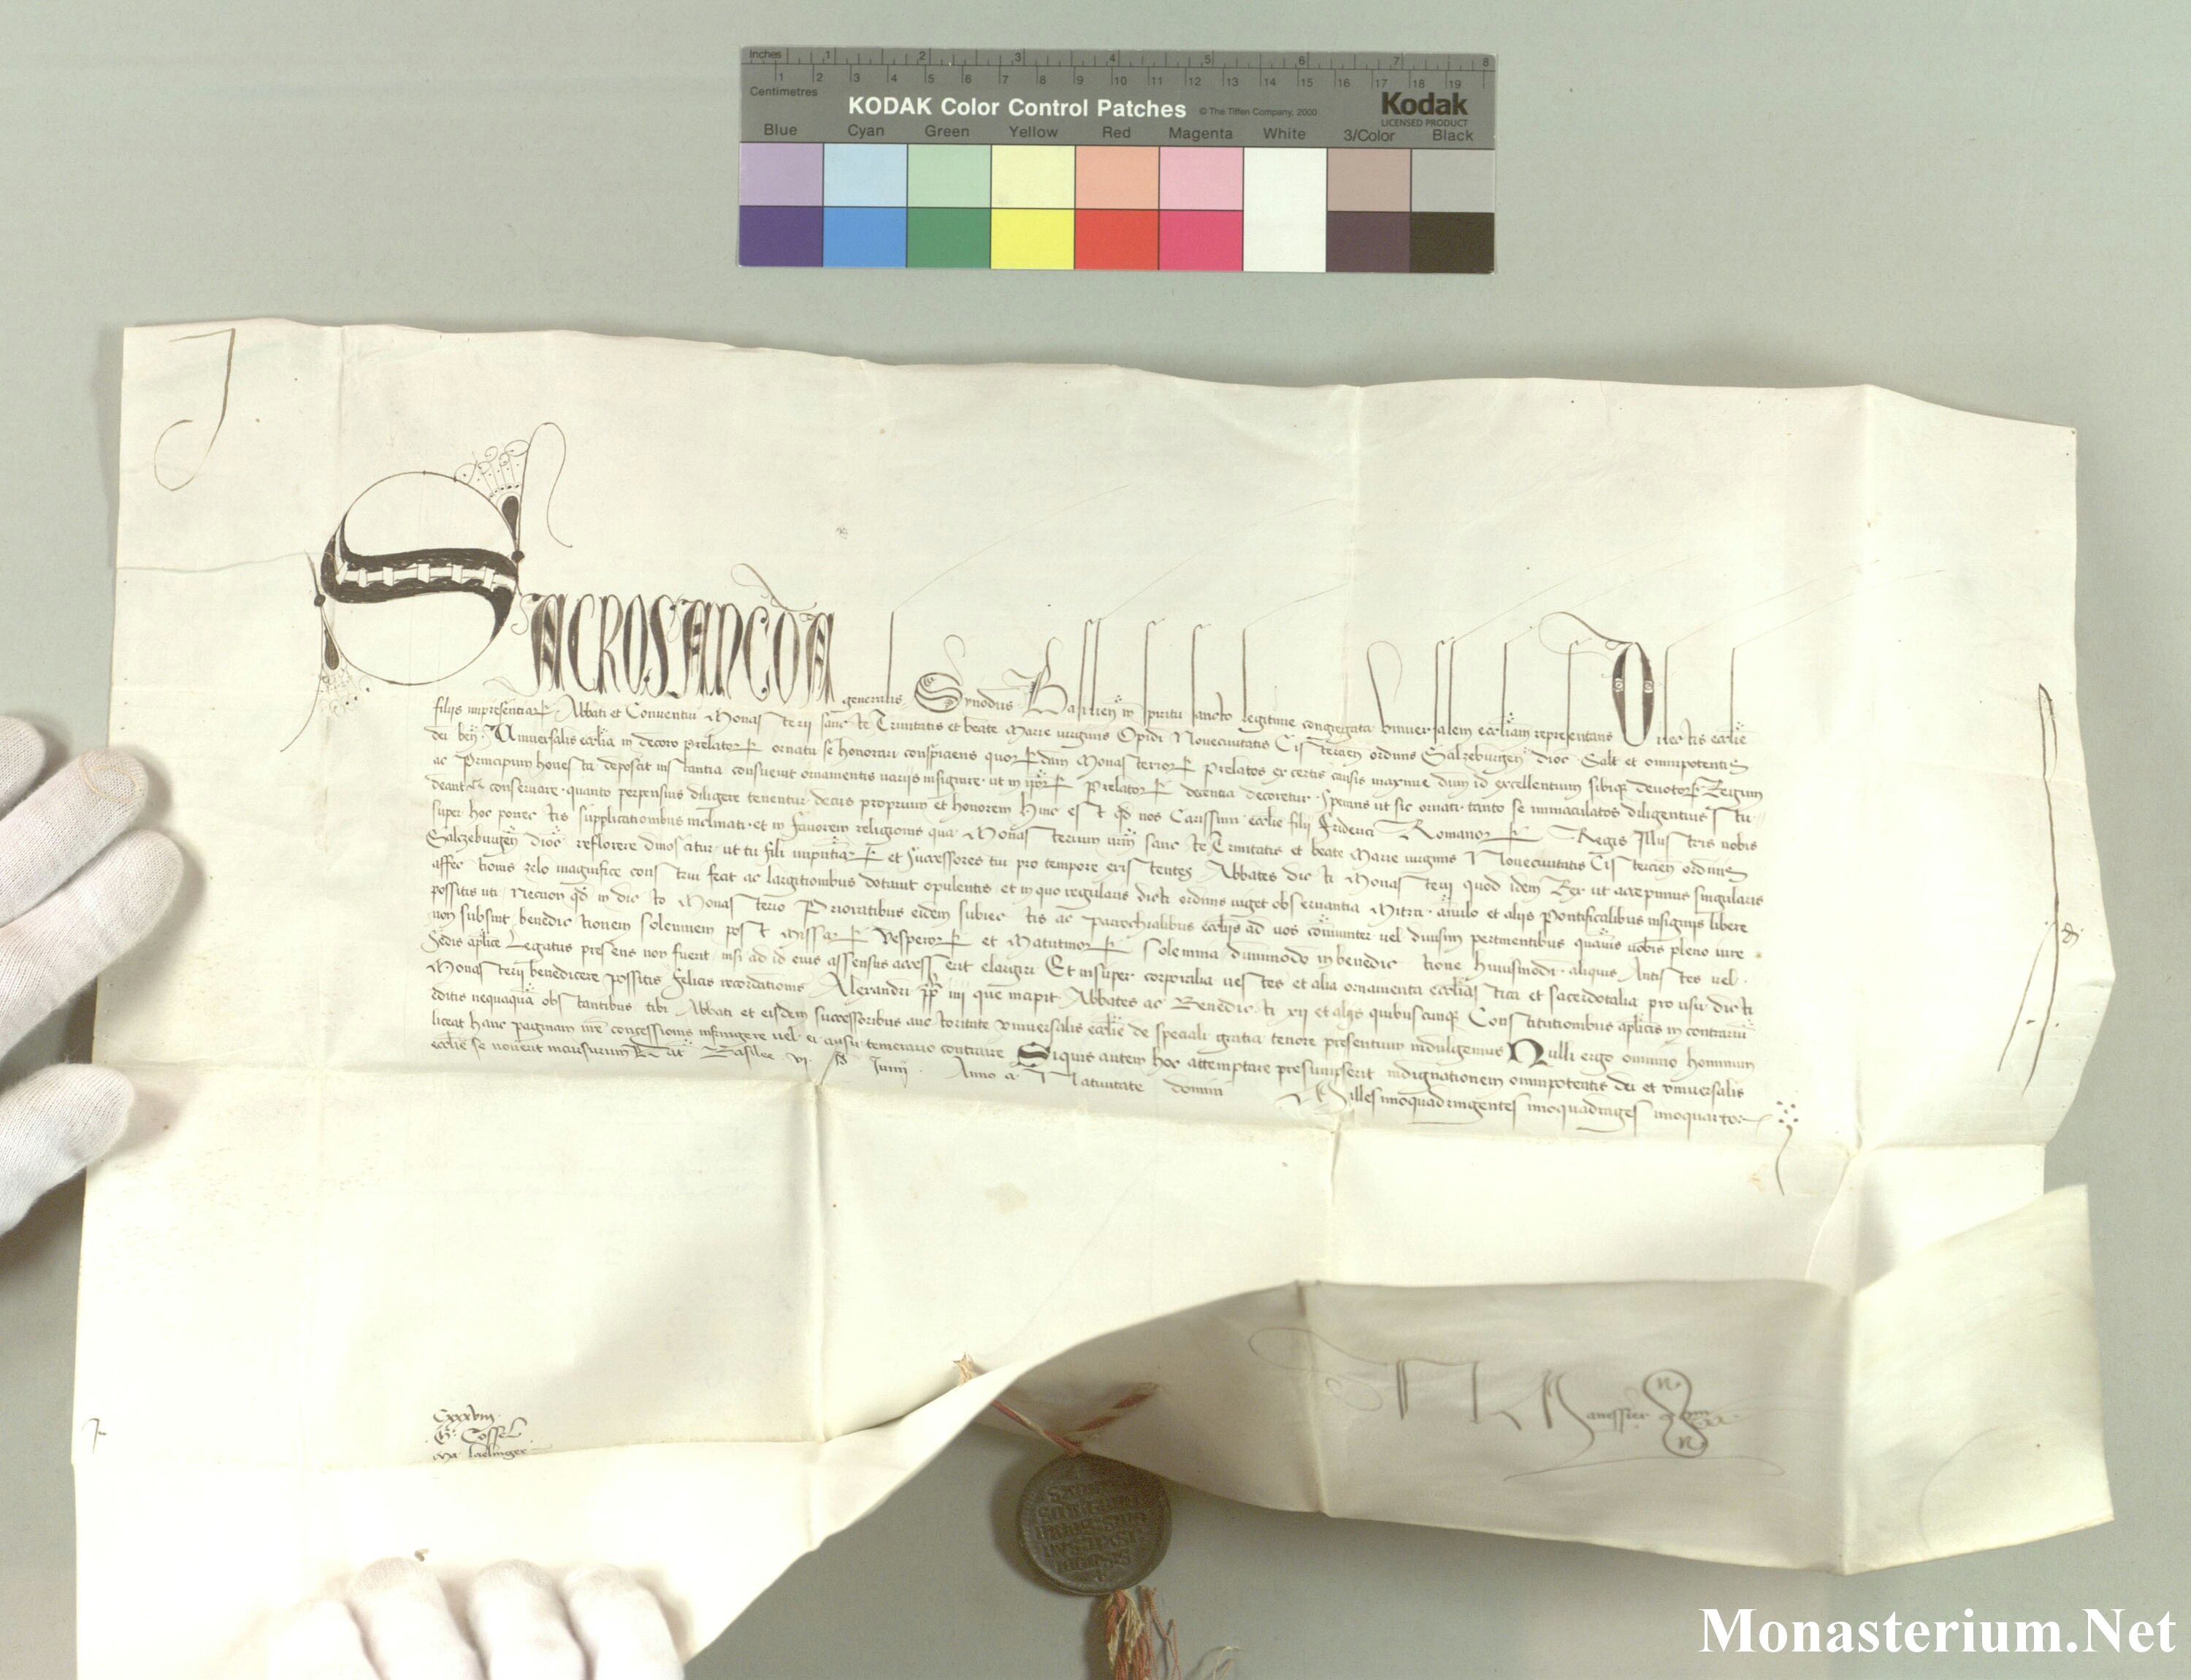 Inches 1 2 3 4 5 6 7 8
1 2 3 4 5 6 7 8 9 10 11 12 13 14 15 16 17 18 19
Centimetres
KODAK Color Control Patches © The Tiffen Company, 2000 Kodak
LICENSED PRODUCT
Blue Cyan Green Yellow Red Magenta White 3/Color Black
SACROSANCTA generalis Synodus Basilien in spiritu sancto legitime congregata universalem eccliam representans Dilectis ecclie
filijs Abbati et Conventui Monasterii sancte Trinitatis et beate Marie virginis Opidi Novecivitatis Cistercien ordinis Salzeburgen dioc Salt et omnipotentis
dei ben. Universalis ecclia in decoro prelator ornatu se honorari conspiciens quordam Monasterior prelatos ex certis causis maxime dum id excellentium sibiq devotor Regum
ac Principum honesta deposcit instantia consuevit ornamentis varijs insignire ut in ipor Prelator decentia decoretur Sperans ut sic ornati tanto se immaculatos diligentius stu
deant conservare quanto perpensius diligere tenentur decus proprium et honorem Hinc est qd nos Carissimi ecclie filij Friderici Romanor Regis Illustris nobis
super hoc porrectis supplicationibus inclinati et in favorem religionis qua Monasterium vrm sancte Trinitatis et beate Marie virginis Novecivitatis Cistercien ordinis
Salzeburgen dioc reflorere dinoscitur ut tu fili et successores tui pro tempore existentes Abbates dicti Monasterij quod idem Rex ut accepimus singularis
affectionis zelo magnifice construi fecit ac largitionibus dotavit opulentis et in quo regularis dicti ordinis viget observantia Mitra anulo et alijs Pontificalibus insignijs libere
possitis uti Necnon qd in dicto Monasterio Prioratibus eidem subiectis ac parrochialibus ecclijs ad vos comuniter vel divisim pertinentibus quavis vobis pleno iure
non subsint benedictionem solennem post Missar Vesperor et Matutinor solemnia dummodo in benedictione huiusmodi aliquis Antistes vel
Sedis aplice Legatus presens non fuerit nisi ad id eius assensus accesserit elargiri Et insuper corporalia vestes et alia ornamenta ecclīastica et sacerdotalia pro usu dicti
Monasterij benedicere possitis felicis recordationis Alexandri pp iiij que incipit Abbates ac Benedicti xij et alijs quibuscunq Constitutionibus aplicis in contrarium
editis nequaqua obstantibus tibi Abbati et eisdem successoribus auctoritate universalis ecclie de speciali gratia tenore presentium indulgemus Nulli ergo omnino hominum
liceat hanc paginam nre concessionis infringere vel ei ausu temerario contraire Siquis autem hoc attemptare presumpserit indignationem omnipotentis dei et universalis
ecclie se noverit incursurum Dat Basilee vj Junij Anno a Nativitate domini Millesimoquadringentesimoquadragesimoquarto
Cxxxviij
Monasterium.Net